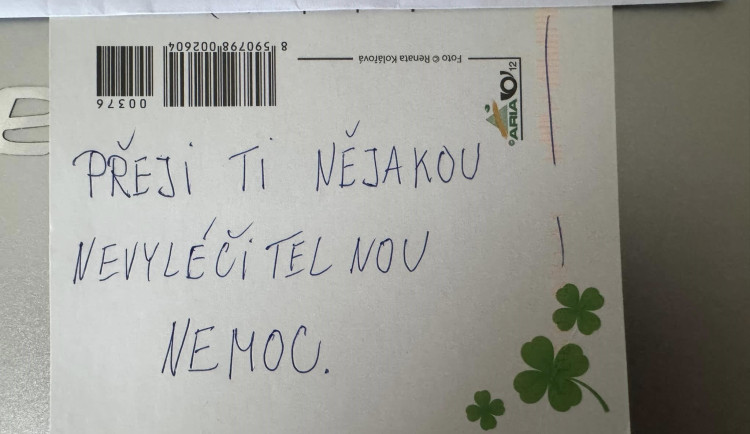 8 590798 002604
00376
Foto © Renata Kolářová
© ARIA
12
PŘEJI TI NĚJAKOU
NEVYLÉČITELNOU
NEMOC.